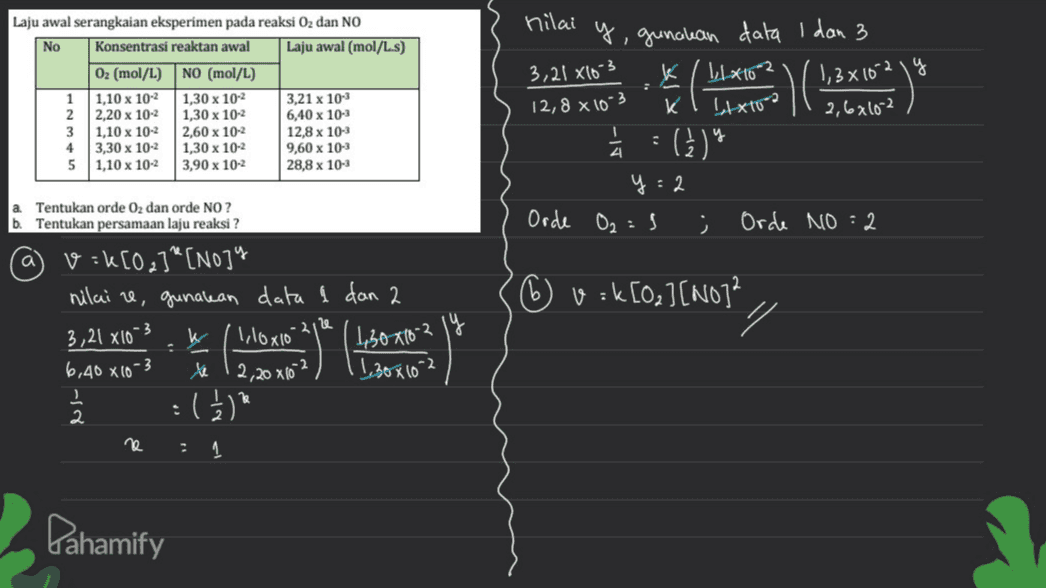 Laju awal serangkaian eksperimen pada reaksi O₂ dan NO
No Konsentrasi reaktan awal Laju awal (mol/L.s)
O₂ (mol/L) NO (mol/L)
1 1,10 x 10⁻² 1,30 x 10⁻² 3,21 x 10⁻³
2 2,20 x 10⁻² 1,30 x 10⁻² 6,40 x 10⁻³
3 1,10 x 10⁻² 2,60 x 10⁻² 12,8 x 10⁻³
4 3,30 x 10⁻² 1,30 x 10⁻² 9,60 x 10⁻³
5 1,10 x 10⁻² 3,90 x 10⁻² 28,8 x 10⁻³
a. Tentukan orde O₂ dan orde NO ?
b. Tentukan persamaan laju reaksi ?
(a) v = k[O₂]ˣ [NO]ʸ
nilai x, gunakan data 1 dan 2
3,21 x10⁻³ / 6,40 x10⁻³ = k/k (1,10x10⁻² / 2,20x10⁻²)ˣ (1,30x10⁻² / 1,30x10⁻²)ʸ
1/2 = (1/2)ˣ
x = 1
nilai y, gunakan data 1 dan 3
3,21 x10⁻³ / 12,8 x10⁻³ = k/k (1,1x10⁻² / 1,1x10⁻²) (1,3x10⁻² / 2,6x10⁻²)ʸ
1/4 = (1/2)ʸ
y = 2
Orde O₂ = 1 ; Orde NO = 2
(b) v = k[O₂][NO]² //
Pahamify